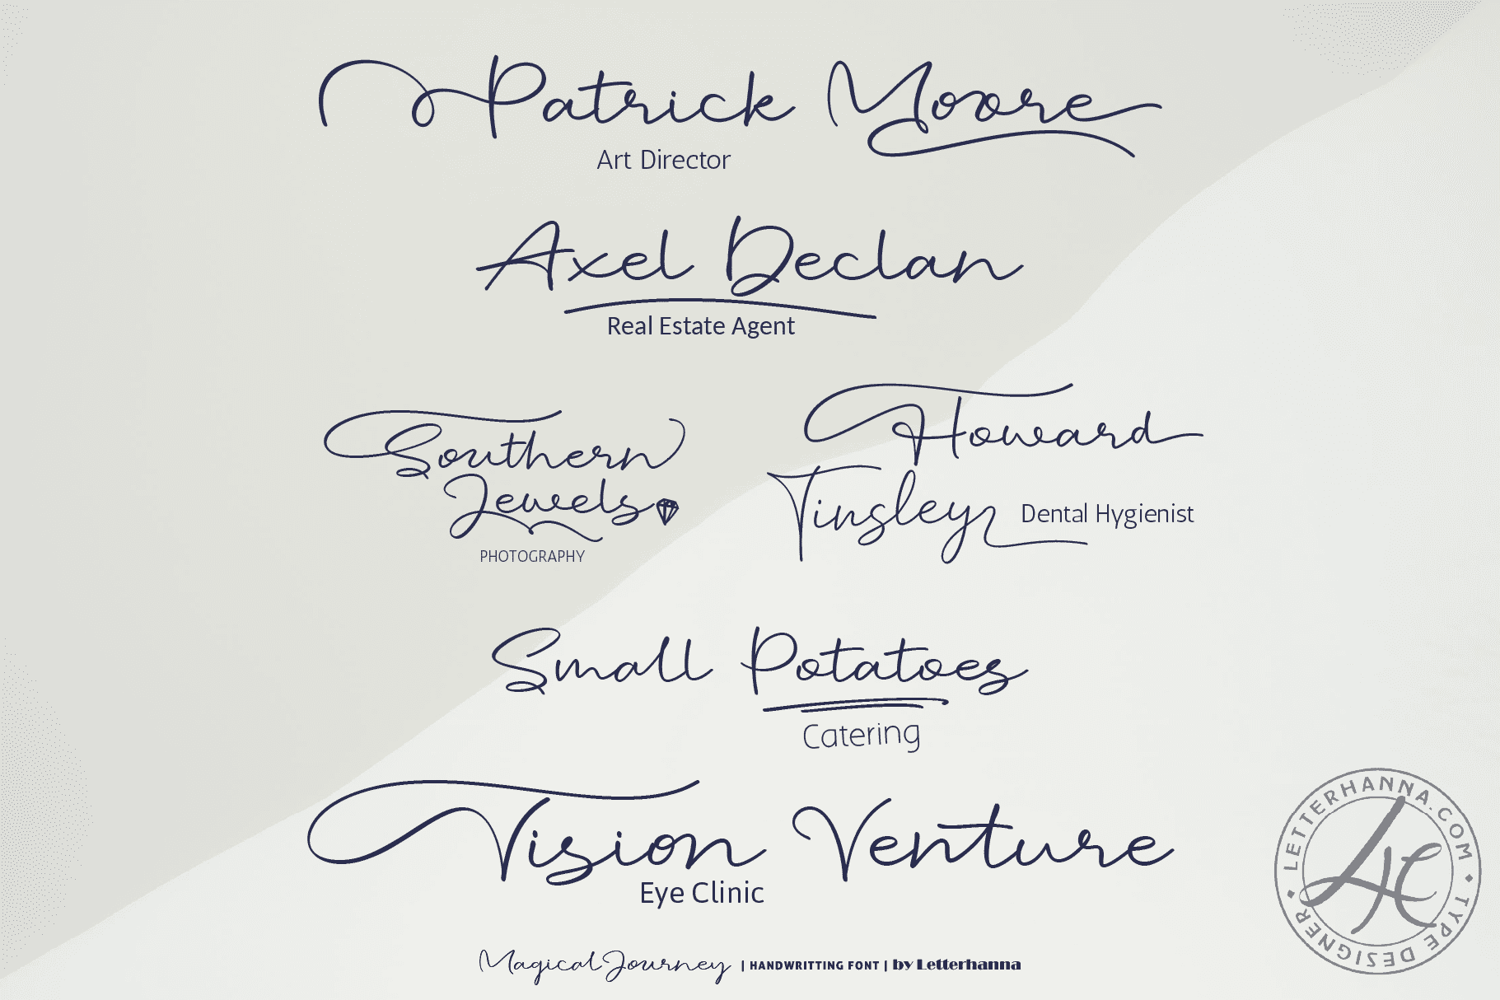 Patrick Moore
Art Director
Axel Declan
Real Estate Agent
Southern
Jewels
PHOTOGRAPHY
Howard
Tinsley
Dental Hygienist
Small Potatoes
Catering
Vision Venture
Eye Clinic
Magical Journey | HANDWRITTING FONT | by Letterhanna
LETTERHANNA.COM
LH
TYPE DESIGNER